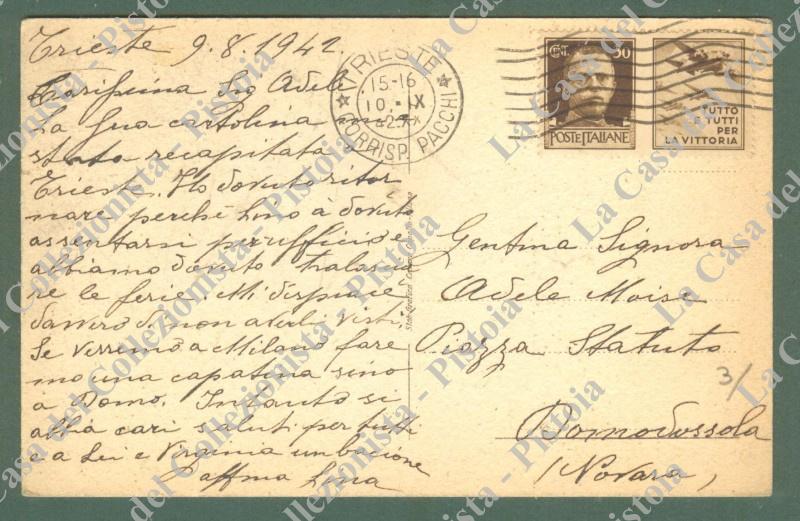 Trieste 9.8.1942.
Carissima Sig Adele
La Sua cartolina mi è
stata recapitata a
Trieste. Ho dovuto ritor
nare perchè Lino à dovuto
assentarsi per ufficio e
abbiamo dovuto tralascia
re le ferie. Mi dispiace
davvero di non averli visti.
Se verremo a Milano fare
mo una capatina sino
a Domo. Intanto si
abbia cari saluti per tutti
e a Lei e Virginia un bacione
aff.ma Lina
TRIESTE
15-16
10.-IX
CORRISP. PACCHI
CENT. 30
POSTE ITALIANE
TUTTO
E TUTTI
PER
LA VITTORIA
Gent.ma Signora
Adele Moise
Piazza Statuto
Domodossola
(Novara)
3/
La Casa del Collezionista - Pistoia